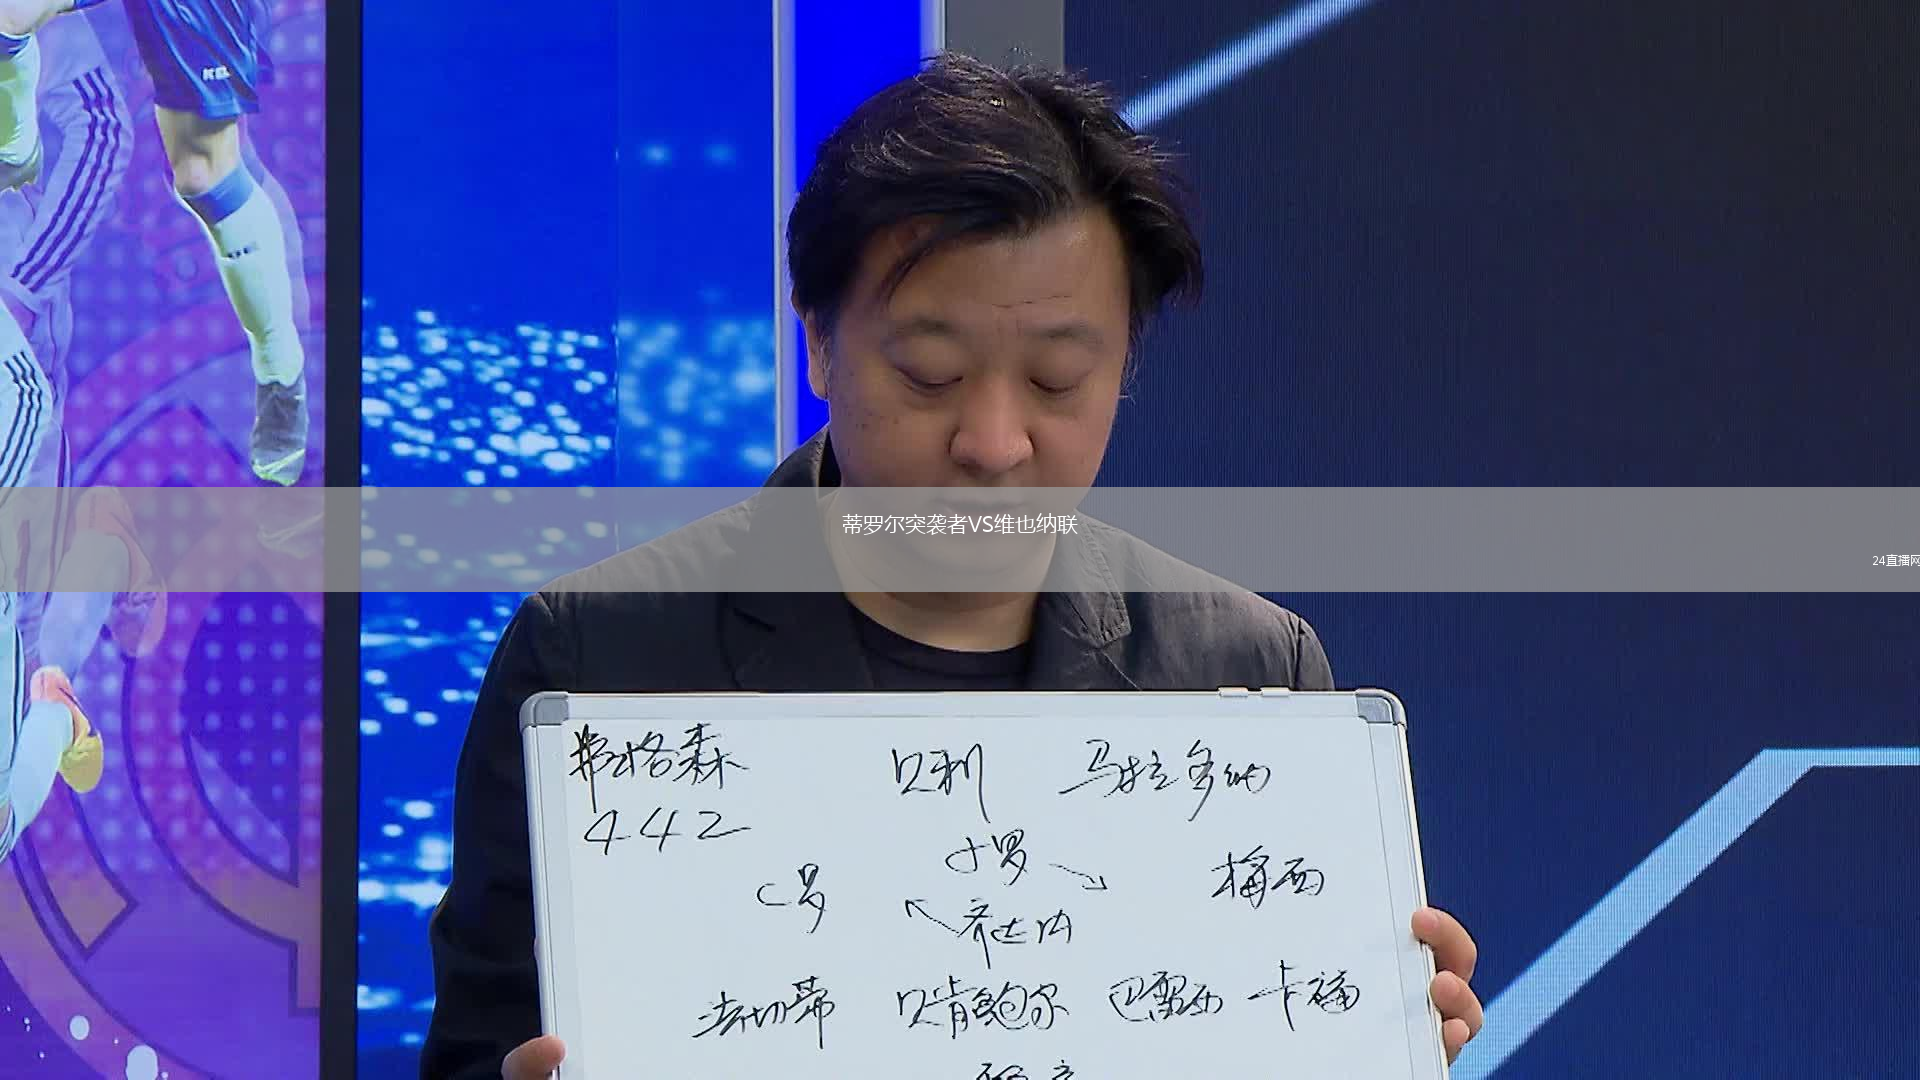 蒂罗尔突袭者VS维也纳联
24直播网
弗格森 贝利 马拉多纳
442
小罗
C罗 梅西
齐达内
法切蒂 贝肯鲍尔 巴雷西 卡福